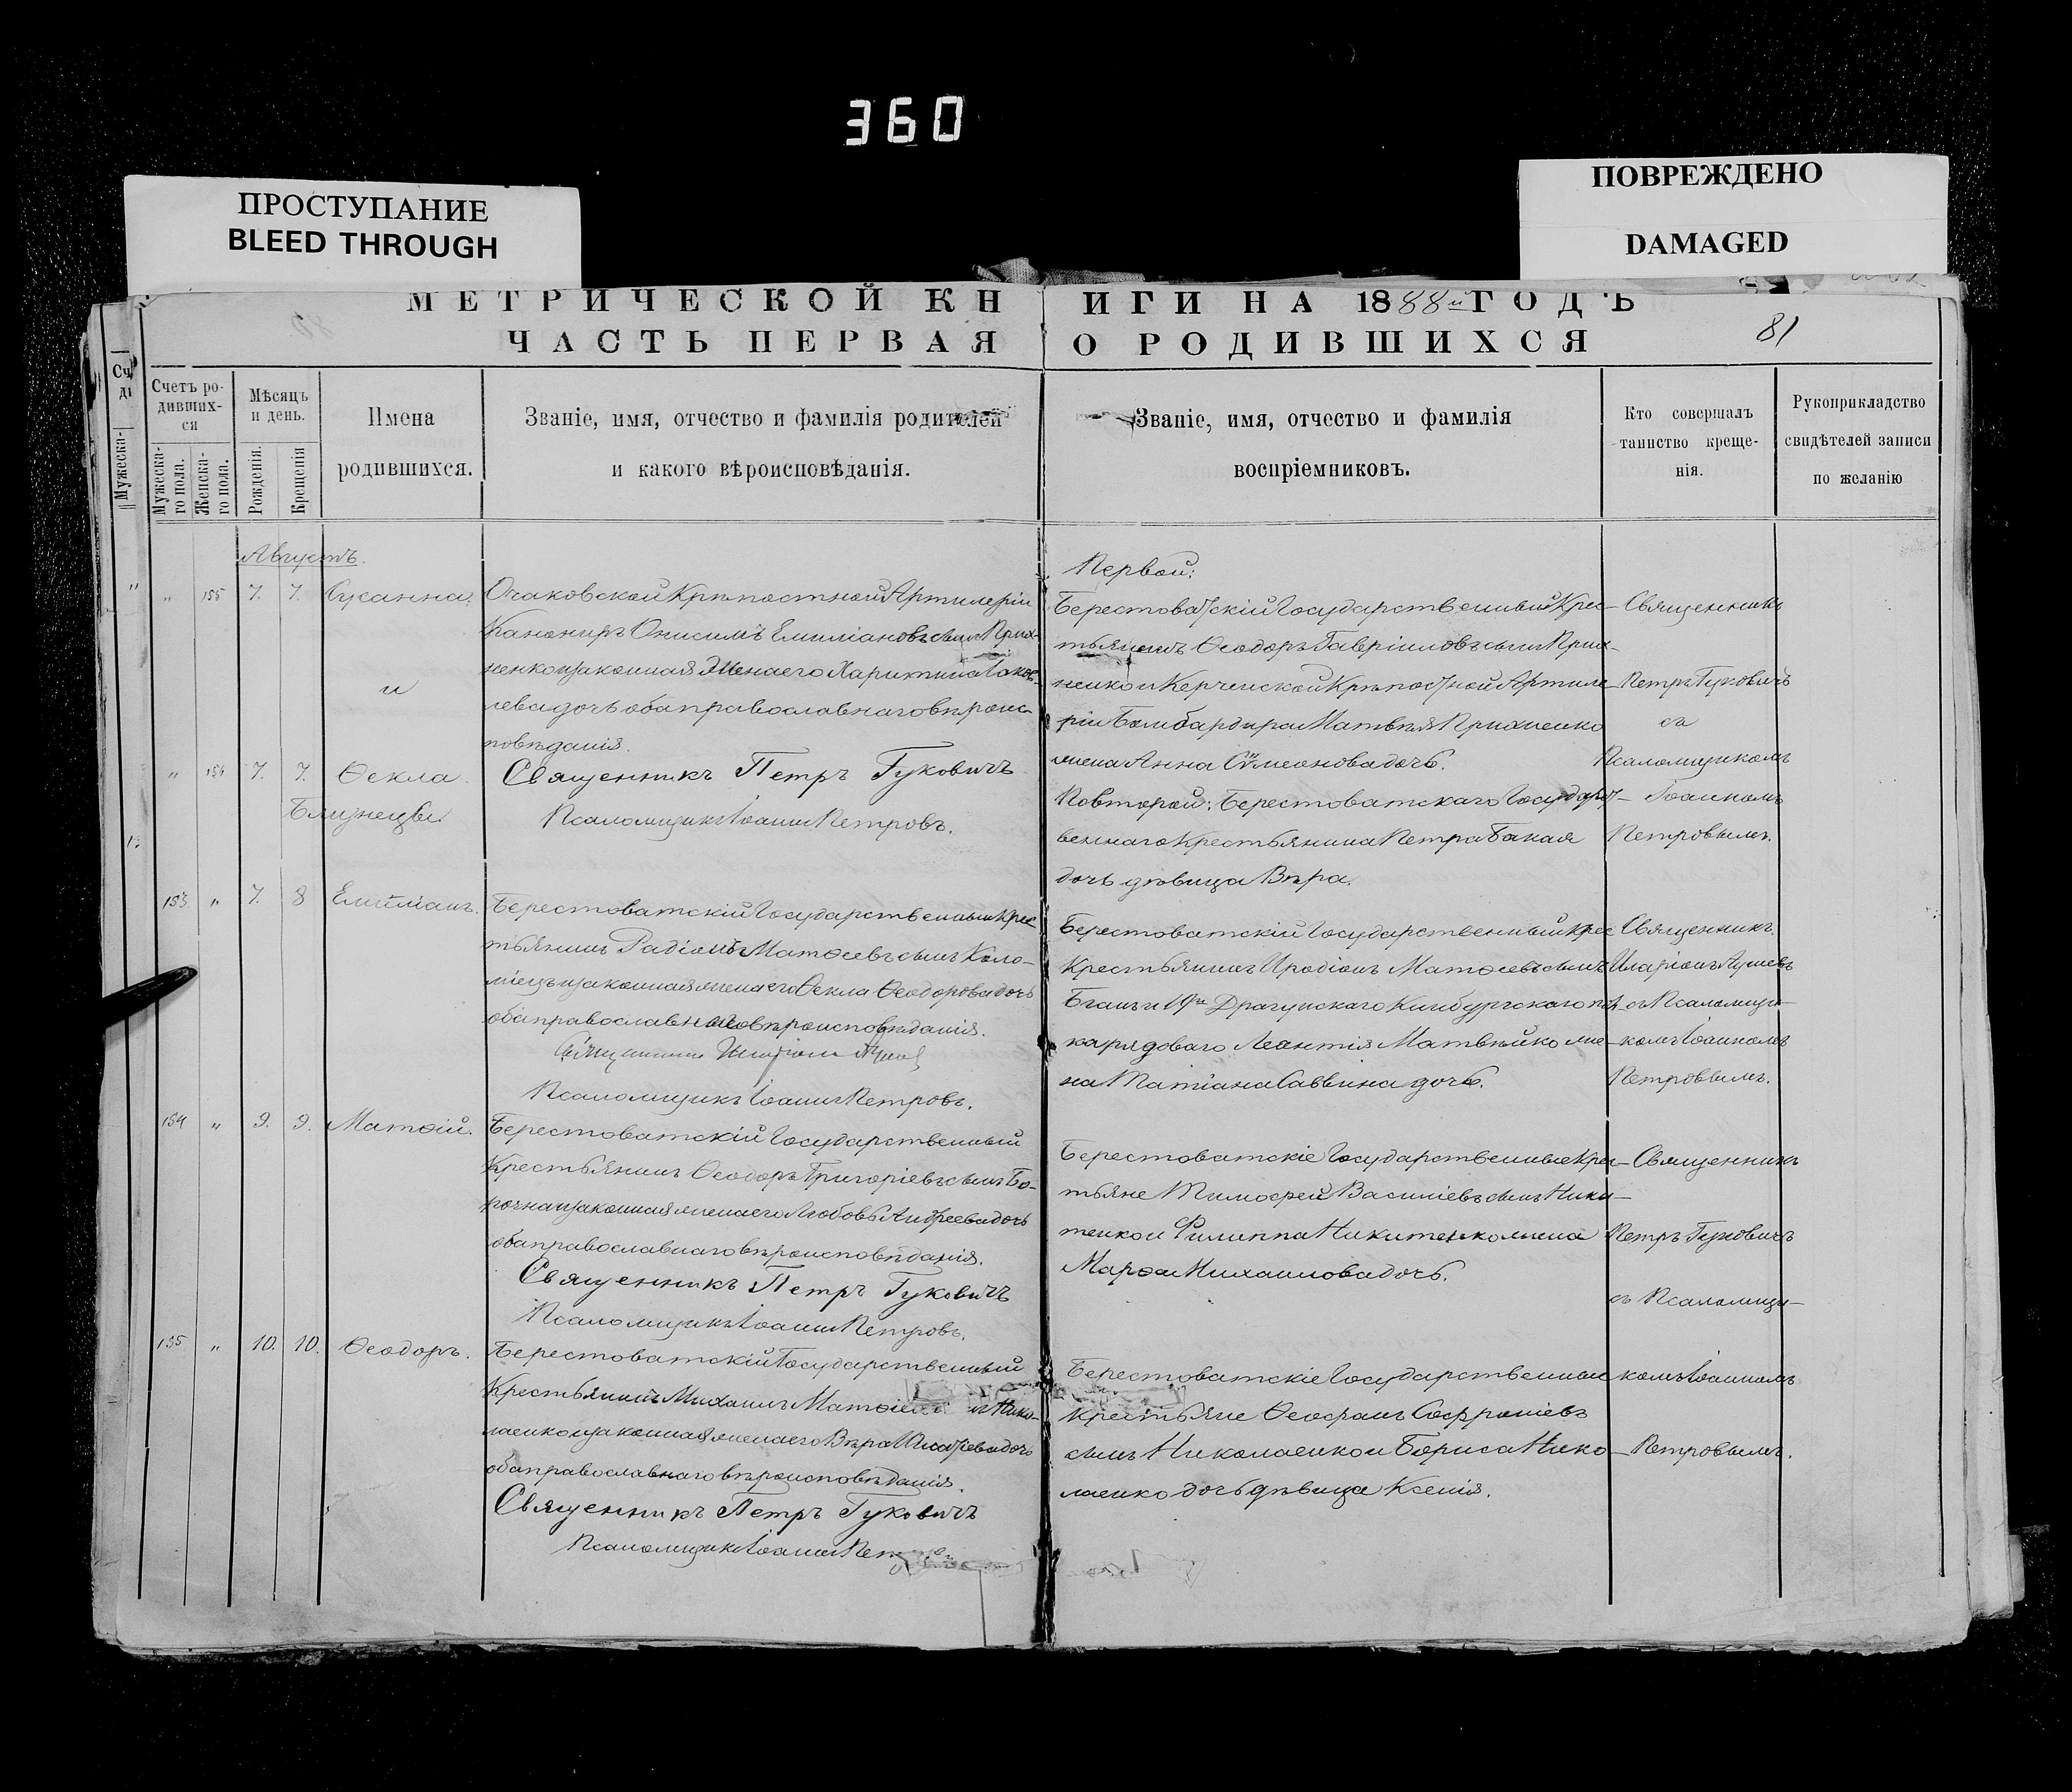 360
ПРОСТУПАНИЕ
BLEED THROUGH
ПОВРЕЖДЕНО
DAMAGED
МЕТРИЧЕСКОЙ КНИГИ НА 1888й ГОДЪ
ЧАСТЬ ПЕРВАЯ О РОДИВШИХСЯ
81
Счетъ ро-
дивших-
ся
Мужеска-
го пола.
Женска-
го пола.
Мѣсяцъ
и день.
Рожденія.
Крещенія
Имена
родившихся.
Званіе, имя, отчество и фамилія родителей
и какого вѣроисповѣданія.
Званіе, имя, отчество и фамилія
воспріемниковъ.
Кто совершалъ
таинство креще-
нія.
Рукоприкладство
свидѣтелей записи
по желанію
Мужеска-
Августъ.
" 155 7. 7. Сусанна.
и
" 156 7. 7. Ѳекла
Близнецы
Очаковской Крѣпостной Артилеріи
Канониръ Онисимъ Емиліановъ сынъ Прих-
ненко и законная жена его Харитина Іаков-
лева дочь оба православнаго вѣроис-
повѣданія.
Священникъ Петръ Гуковичъ
Псаломщикъ Іоаннъ Петровъ.
Первой:
Берестоватскій Государственный Крес-
тьянинъ Ѳеодоръ Гавріиловъ сынъ Прих-
ненко и Керченской Крѣпостной Артиле-
ріи Бомбардира Матвѣя Прихненко
жена Анна Сѵмеонова дочь.
По второй: Берестоватскаго Государст-
веннаго Крестьянина Петра Бакая
дочь дѣвица Вѣра.
Священникъ
Петръ Гуковичъ
съ
Псаломщикомъ
Іоанномъ
Петровымъ.
153. " 7. 8 Емиліанъ.
Берестоватскій Государственный Крес
тьянинъ Радіонъ Матѳеевъ сынъ Коло-
міецъ и законная жена его Ѳекла Ѳеодорова дочь
оба православнаго вѣроисповѣданія.
Псаломщикъ Іоаннъ Петровъ.
Берестоватскій Государственный Крес
Крестьянинъ Иродіонъ Матѳеевъ сынъ
Драгунскаго Кинбургскаго пол
ка рядоваго Леонтія Матвѣйко же-
на Татіана Саввина дочь.
Священникъ
Иларіонъ
съ Псаломщи-
комъ Іоанномъ
Петровымъ.
154 " 9. 9. Матѳій.
Берестоватскій Государственный
Крестьянинъ Ѳеодоръ Григоріевъ сынъ Бо-
и законная жена его Любовь Андреева дочь
оба православнаго вѣроисповѣданія.
Священникъ Петръ Гуковичъ
Псаломщикъ Іоаннъ Петровъ.
Берестоватскіе Государственные Крес-
тьяне Тимоѳей Василіевъ сынъ Ники-
тенко и Филиппа Никитенко жена
Марѳа Михаилова дочь.
Священникъ
Петръ Гуковичъ
съ Псаломщи-
155 " 10. 10. Ѳеодоръ.
Берестоватскій Государственный
Крестьянинъ Михаилъ Нико-
лаенко и законная жена его Вѣра дочь
оба православнаго вѣроисповѣданія.
Священникъ Петръ Гуковичъ
Псаломщикъ Іоаннъ
Берестоватскіе Государственные
крестьяне Ѳеофанъ Софроніевъ
сынъ Николаенко и Бориса Нико-
лаенко дочь дѣвица Ксенія.
комъ Іоанномъ
Петровымъ.